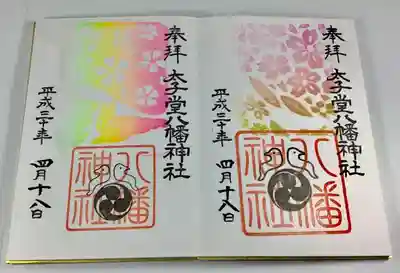 奉拝
太子堂八幡神社
平成三十年
四月十八日
八幡
神社
奉拝
太子堂八幡神社
平成三十年
四月十八日
八幡
神社